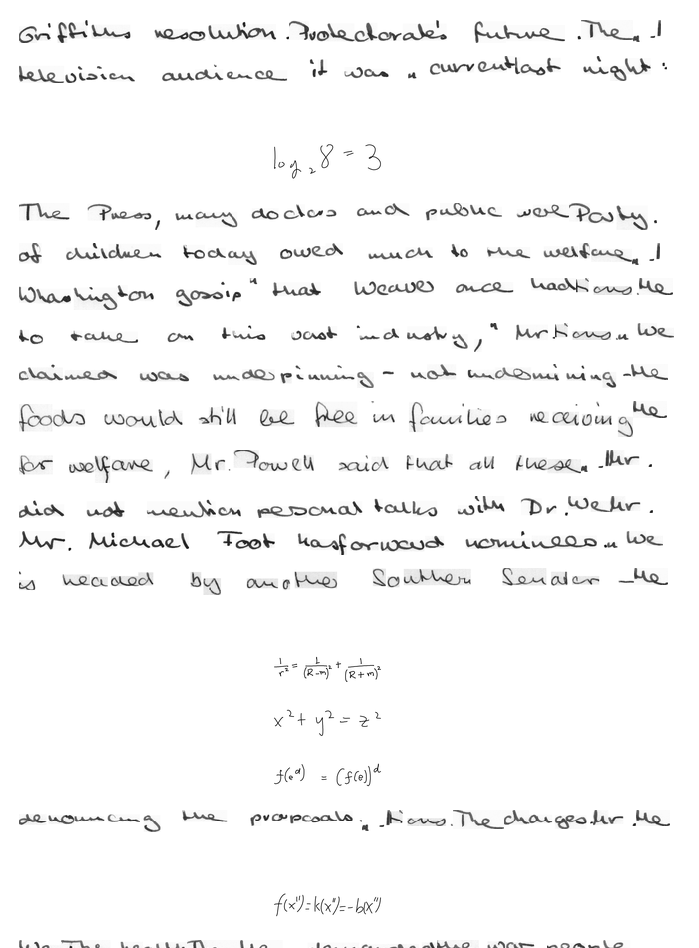 Griffiths resolution. Protectorate's future. The „ I
television audience it was „ currentlast night:
log₂ 8 = 3
The Press, many doctors and public were Party.
of children today owed much to the welfare „ I
Whashington gossip" that Weaver once hadtions. He
to take on this vast industry," Mr tions. „ We
claimed was underpinning - not undermining - the
foods would still be free in families receiving the
for welfare, Mr. Powell said that all these „ . Mr.
did not mention personal talks with Dr. We Mr.
Mr. Michael Foot hasforward nominees. „ We
is headed by another Southern Senator - He
1/r² = 1/(R-m)² + 1/(R+m)²
x² + y² = z²
f(e^d) = (f(e))^d
denouncing the proposals. „ . tions. The charges. Mr. He
f(x") = k(x") = -b(x")